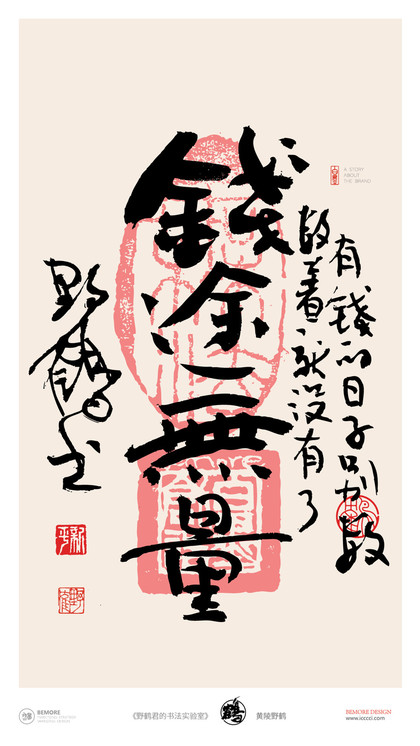 錢途無量
有錢的日子别数
数着就没有了
野鶴书
A STORY
ABOUT
THE BRAND
BEMORE
《野鹤君的书法实验室》
黄陵野鹤
BEMORE DESIGN
www.icccci.com